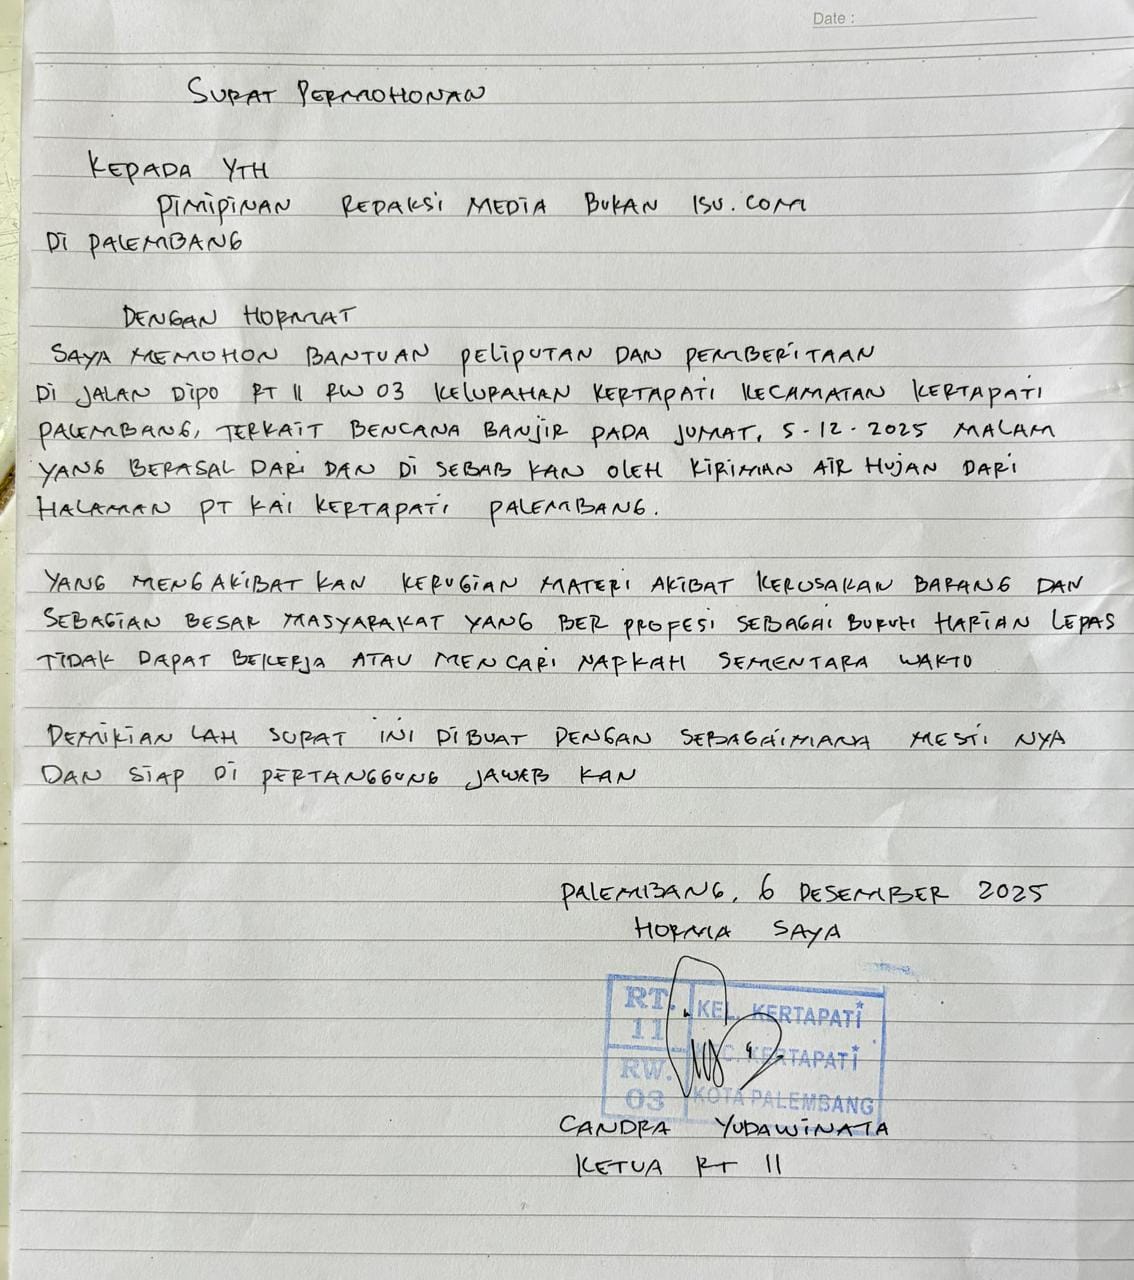 Date :
SURAT PERMOHONAN
KEPADA YTH
PIMIPINAN REDAKSI MEDIA BUKAN ISU.COM
DI PALEMBANG
DENGAN HORMAT
SAYA MEMOHON BANTUAN PELIPUTAN DAN PEMBERITAAN
DI JALAN DIPO RT 11 RW 03 KELURAHAN KERTAPATI KECAMATAN KERTAPATI
PALEMBANG, TERKAIT BENCANA BANJIR PADA JUMAT, 5-12-2025 MALAM
YANG BERASAL DARI DAN DI SEBAB KAN OLEH KIRIMAN AIR HUJAN DARI
HALAMAN PT KAI KERTAPATI PALEMBANG.
YANG MENGAKIBAT KAN KERUGIAN MATERI AKIBAT KERUSAKAN BARANG DAN
SEBAGIAN BESAR MASYARAKAT YANG BER PROFESI SEBAGAI BURUH HARIAN LEPAS
TIDAK DAPAT BEKERJA ATAU MENCARI NAFKAH SEMENTARA WAKTU
DEMIKIAN LAH SURAT INI DIBUAT DENGAN SEBAGAIMANA MESTI NYA
DAN SIAP DI PERTANGGUNG JAWAB KAN
PALEMBANG, 6 DESEMBER 2025
HORMA SAYA
RT. 11 KEL. KERTAPATI
KEC. KERTAPATI
RW. 03 KOTA PALEMBANG
CANDRA YUDAWINATA
KETUA RT 11